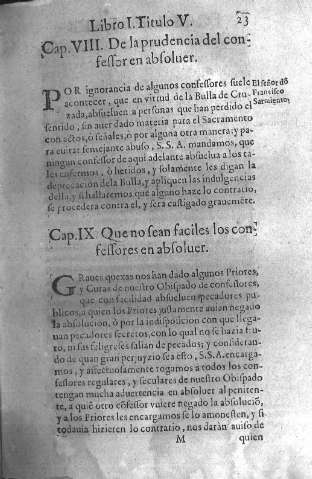 Libro I. Titulo V. 23
Cap. VIII. De la prudencia del con-
fessor en absoluer.
POR ignorancia de algunos confessores suele
acontecer, que en virtud de la Bulla de Cru-
zada, absueluen a personas que han perdido el
sentido, sin auer dado materia para el Sacramento
con actos, ò señales, ò por alguna otra manera: y pa-
ra euitar semejante abuso, S. S. A. mandamos, que
ningun confessor de aqui adelante absuelua a los ta-
les enfermos, ò heridos, y solamente les digan la
deprecacion de la Bulla, y apliquen las indulgencias
della, y si hallaremos que alguno haze lo contrario,
se procederà contra el, y serà castigado grauemēte.
El señor dō
Francisco
Sarmiento,
Cap. IX Que no sean faciles los con-
fessores en absoluer.
GRaues quexas nos han dado algunos Priores,
y Curas de nuestro Obispado de confessores,
que con facilidad absueluen pecadores pu-
blicos, a quien los Priores justamente auien negado
la absolucion, ò por la indisposicion con que llega-
uan pecadores secretos, con lo qual no se hazia fru-
to, ni sus feligreses salian de pecados; y consideran-
do de quan gran perjuyzio sea esto, S. S. A. encarga-
mos, y afectuosamente rogamos a todos los con-
fessores regulares, y seculares de nuestro Obispado
tengan mucha aduertencia en absoluer al peniten-
te, a quiē otro cōfessor vuiere negado la absoluciō,
y a los Priores les encargamos se lo amonesten, y si
todauia hizieren lo contrario, nos daràn auiso de
M quien